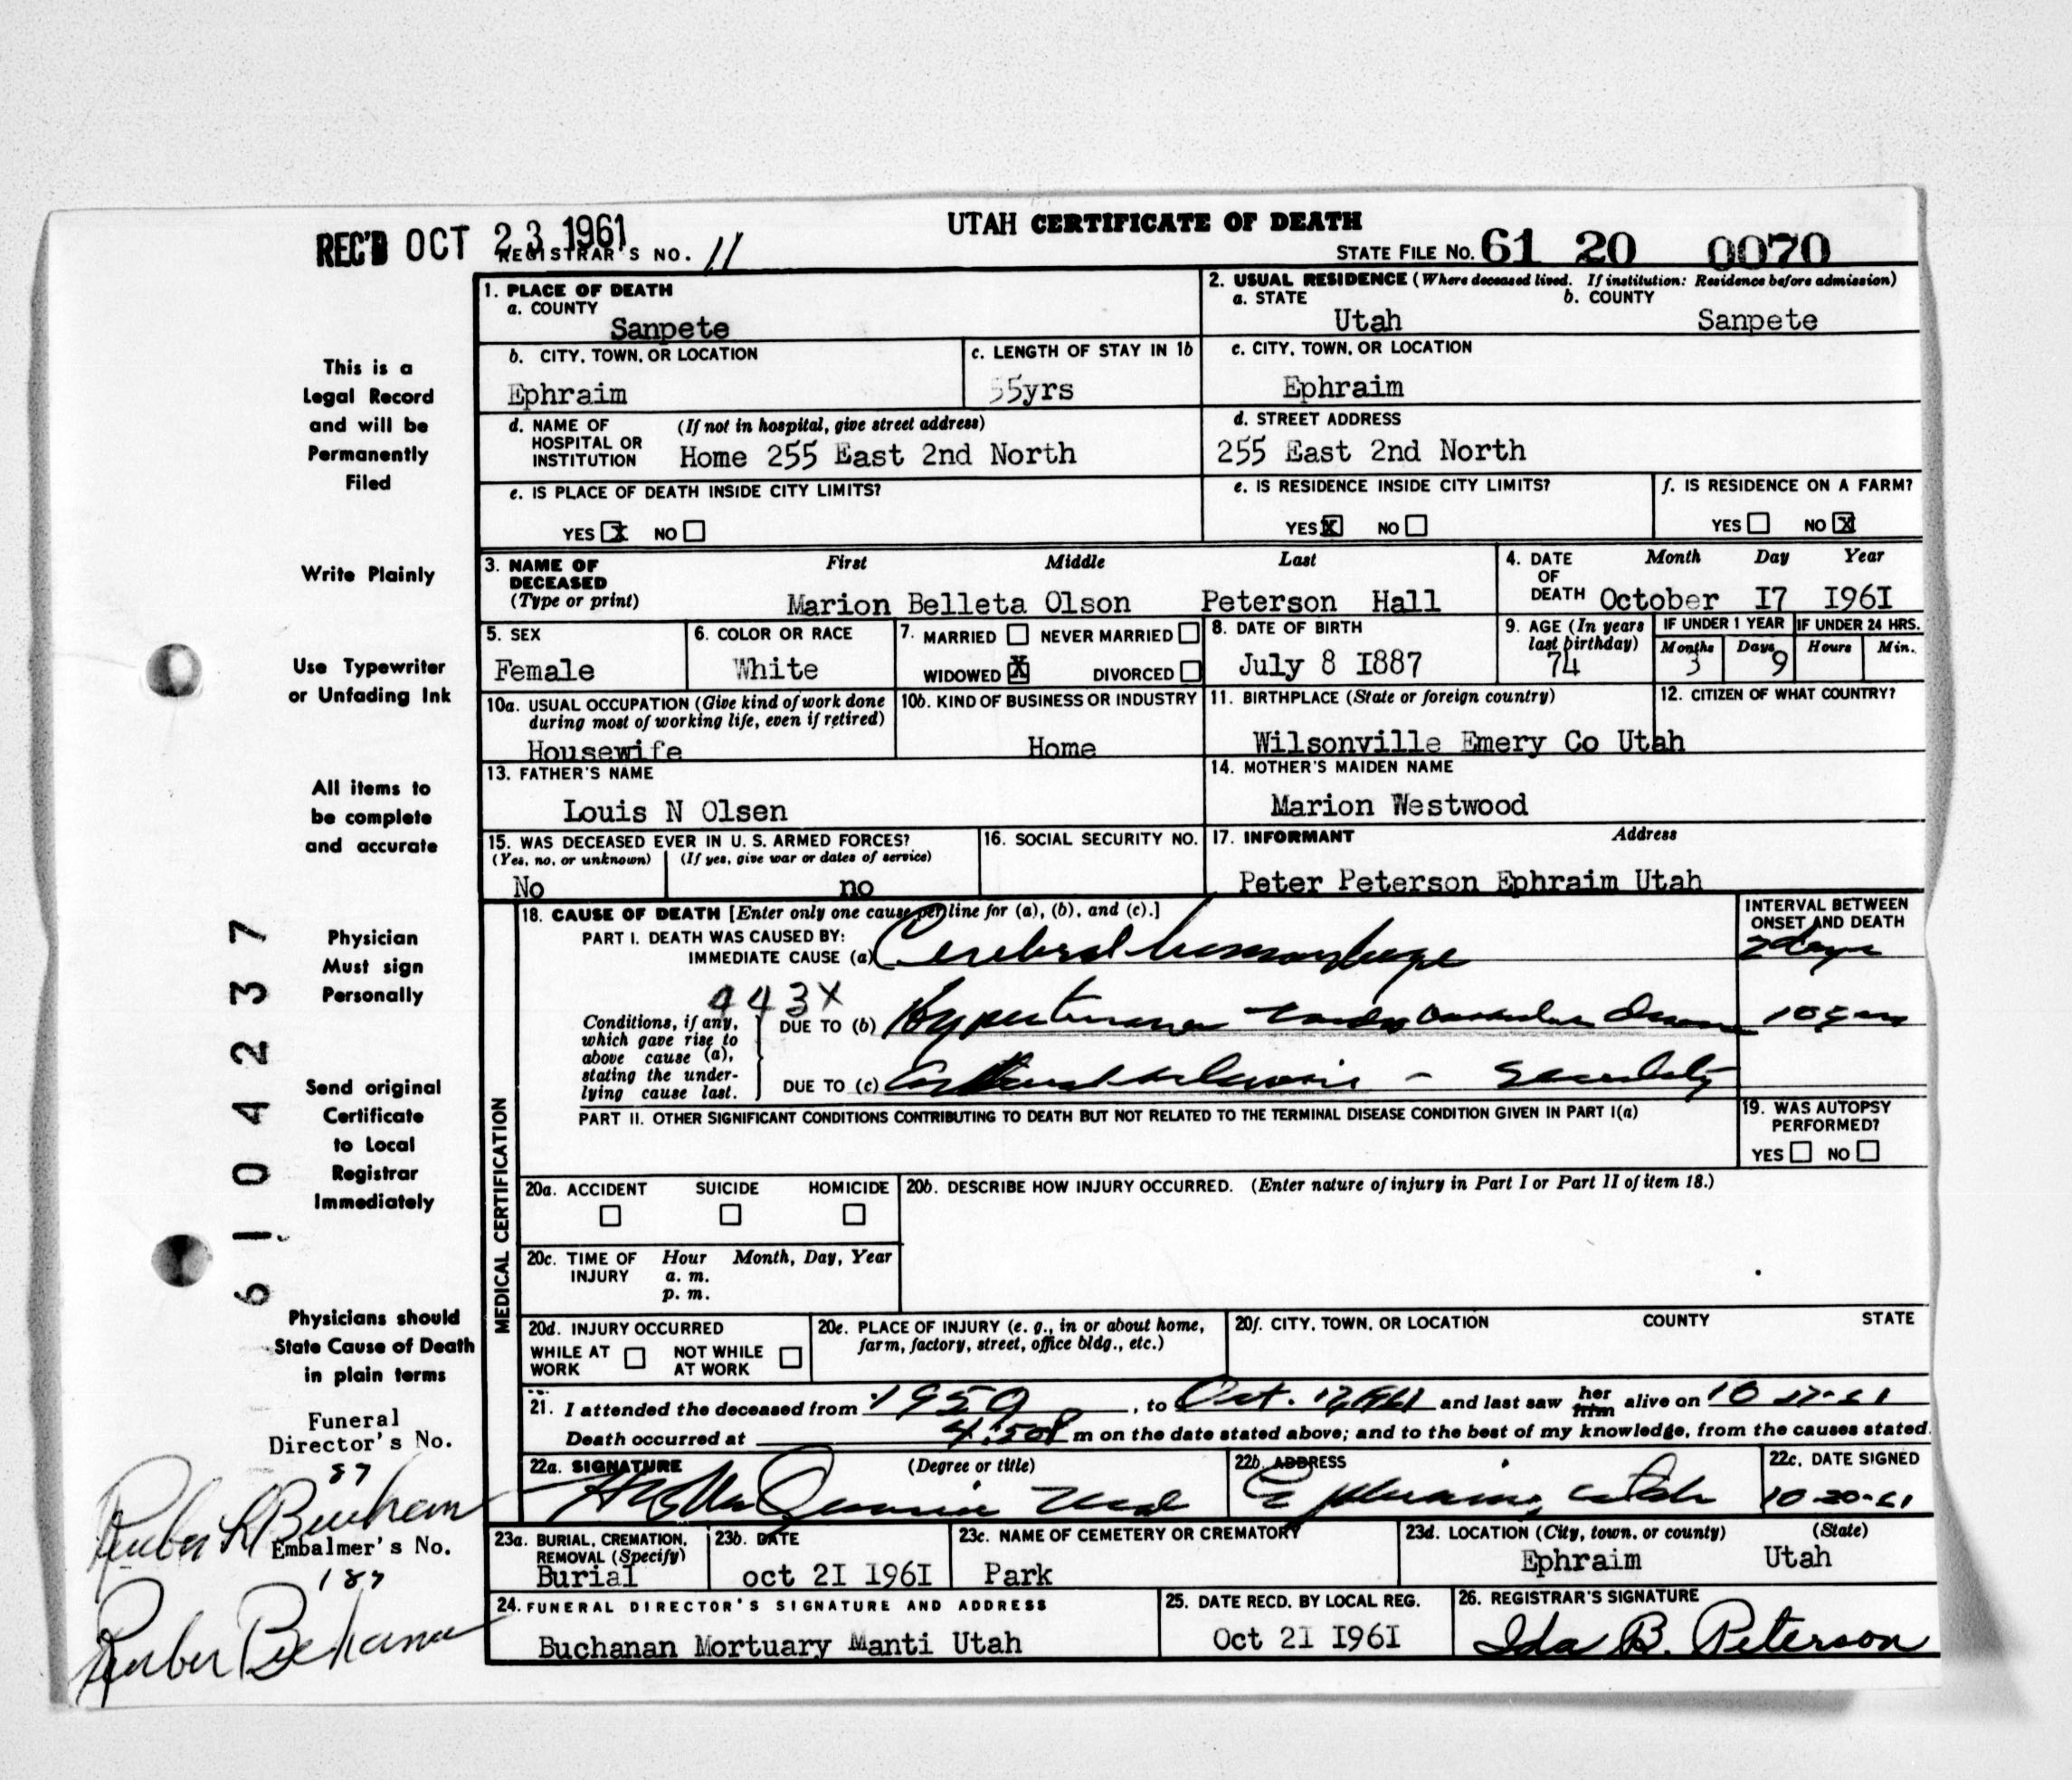 REC'D OCT 23 1961
REGISTRAR'S NO. 11
UTAH CERTIFICATE OF DEATH
STATE FILE NO. 61 20 0070
This is a
Legal Record
and will be
Permanently
Filed
Write Plainly
Use Typewriter
or Unfading Ink
All items to
be complete
and accurate
Physician
Must sign
Personally
Send original
Certificate
to Local
Registrar
Immediately
Physicians should
State Cause of Death
in plain terms
Funeral
Director's No.
87
Embalmer's No.
187
61 04237
1. PLACE OF DEATH
a. COUNTY
Sanpete
2. USUAL RESIDENCE (Where deceased lived. If institution: Residence before admission)
a. STATE b. COUNTY
Utah Sanpete
b. CITY, TOWN, OR LOCATION
Ephraim
c. LENGTH OF STAY IN 1b
55yrs
c. CITY, TOWN, OR LOCATION
Ephraim
d. NAME OF (If not in hospital, give street address)
HOSPITAL OR
INSTITUTION Home 255 East 2nd North
d. STREET ADDRESS
255 East 2nd North
e. IS PLACE OF DEATH INSIDE CITY LIMITS?
YES X NO
e. IS RESIDENCE INSIDE CITY LIMITS?
YES X NO
f. IS RESIDENCE ON A FARM?
YES NO X
3. NAME OF First Middle Last
DECEASED
(Type or print) Marion Belleta Olson Peterson Hall
4. DATE Month Day Year
OF
DEATH October I7 I96I
5. SEX
Female
6. COLOR OR RACE
White
7. MARRIED NEVER MARRIED
WIDOWED X DIVORCED
8. DATE OF BIRTH
July 8 I887
9. AGE (In years
last birthday)
74
IF UNDER 1 YEAR IF UNDER 24 HRS.
Months Days Hours Min.
3 9
10a. USUAL OCCUPATION (Give kind of work done
during most of working life, even if retired)
Housewife
10b. KIND OF BUSINESS OR INDUSTRY
Home
11. BIRTHPLACE (State or foreign country)
Wilsonville Emery Co Utah
12. CITIZEN OF WHAT COUNTRY?
13. FATHER'S NAME
Louis N Olsen
14. MOTHER'S MAIDEN NAME
Marion Westwood
15. WAS DECEASED EVER IN U. S. ARMED FORCES?
(Yes, no, or unknown) (If yes, give war or dates of service)
No no
16. SOCIAL SECURITY NO.
17. INFORMANT Address
Peter Peterson Ephraim Utah
MEDICAL CERTIFICATION
18. CAUSE OF DEATH [Enter only one cause per line for (a), (b), and (c).]
INTERVAL BETWEEN
ONSET AND DEATH
PART I. DEATH WAS CAUSED BY:
IMMEDIATE CAUSE (a) Cerebral hemorrhage 2 days
443X
Conditions, if any,
which gave rise to
above cause (a),
stating the under-
lying cause last.
DUE TO (b) Hypertensive cardiovascular disease 10 years
DUE TO (c) - Senility
PART II. OTHER SIGNIFICANT CONDITIONS CONTRIBUTING TO DEATH BUT NOT RELATED TO THE TERMINAL DISEASE CONDITION GIVEN IN PART I(a)
19. WAS AUTOPSY
PERFORMED?
YES NO
20a. ACCIDENT SUICIDE HOMICIDE
20b. DESCRIBE HOW INJURY OCCURRED. (Enter nature of injury in Part I or Part II of item 18.)
20c. TIME OF Hour Month, Day, Year
INJURY a. m.
p. m.
20d. INJURY OCCURRED
WHILE AT NOT WHILE
WORK AT WORK
20e. PLACE OF INJURY (e. g., in or about home,
farm, factory, street, office bldg., etc.)
20f. CITY, TOWN, OR LOCATION COUNTY STATE
21. I attended the deceased from 1950, to Oct. 17, 1961 and last saw her him alive on 10
Death occurred at 4:50P m on the date stated above; and to the best of my knowledge, from the causes stated.
22a. SIGNATURE (Degree or title)
22b. ADDRESS
Ephraim, Utah
22c. DATE SIGNED
10-20-61
23a. BURIAL, CREMATION,
REMOVAL (Specify)
Burial
23b. DATE
oct 2I I96I
23c. NAME OF CEMETERY OR CREMATORY
Park
23d. LOCATION (City, town, or county) (State)
Ephraim Utah
24. FUNERAL DIRECTOR'S SIGNATURE AND ADDRESS
Buchanan Mortuary Manti Utah
25. DATE RECD. BY LOCAL REG.
Oct 2I I96I
26. REGISTRAR'S SIGNATURE
Ida B. Peterson